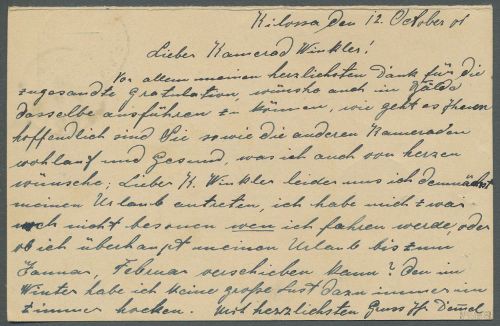 Kilossa den 12. October 01
Lieber Kamerad Winkler!
Vor allem meinen herzlichsten Dank für die
zugesandte Gratulation, wünsche auch in Bälde
dasselbe ausführen zu können, wie geht es Ihnen
hoffendlich sind Sie sowie die anderen Kameraden
wohlauf und Gesund, was ich auch von herzen
wünsche; Lieber K. Winkler leider muss ich demnächst
meinen Urlaub antreten, ich habe mich zwar
noch nicht besonen wen ich fahren werde, oder
ob ich überhaupt meinen Urlaub bis zum
Januar, Februar verschieben kann? den im
Winter habe ich keine große Lust dazu immer im
zimmer hocken. Mit herzlichsten Gruss Ihr